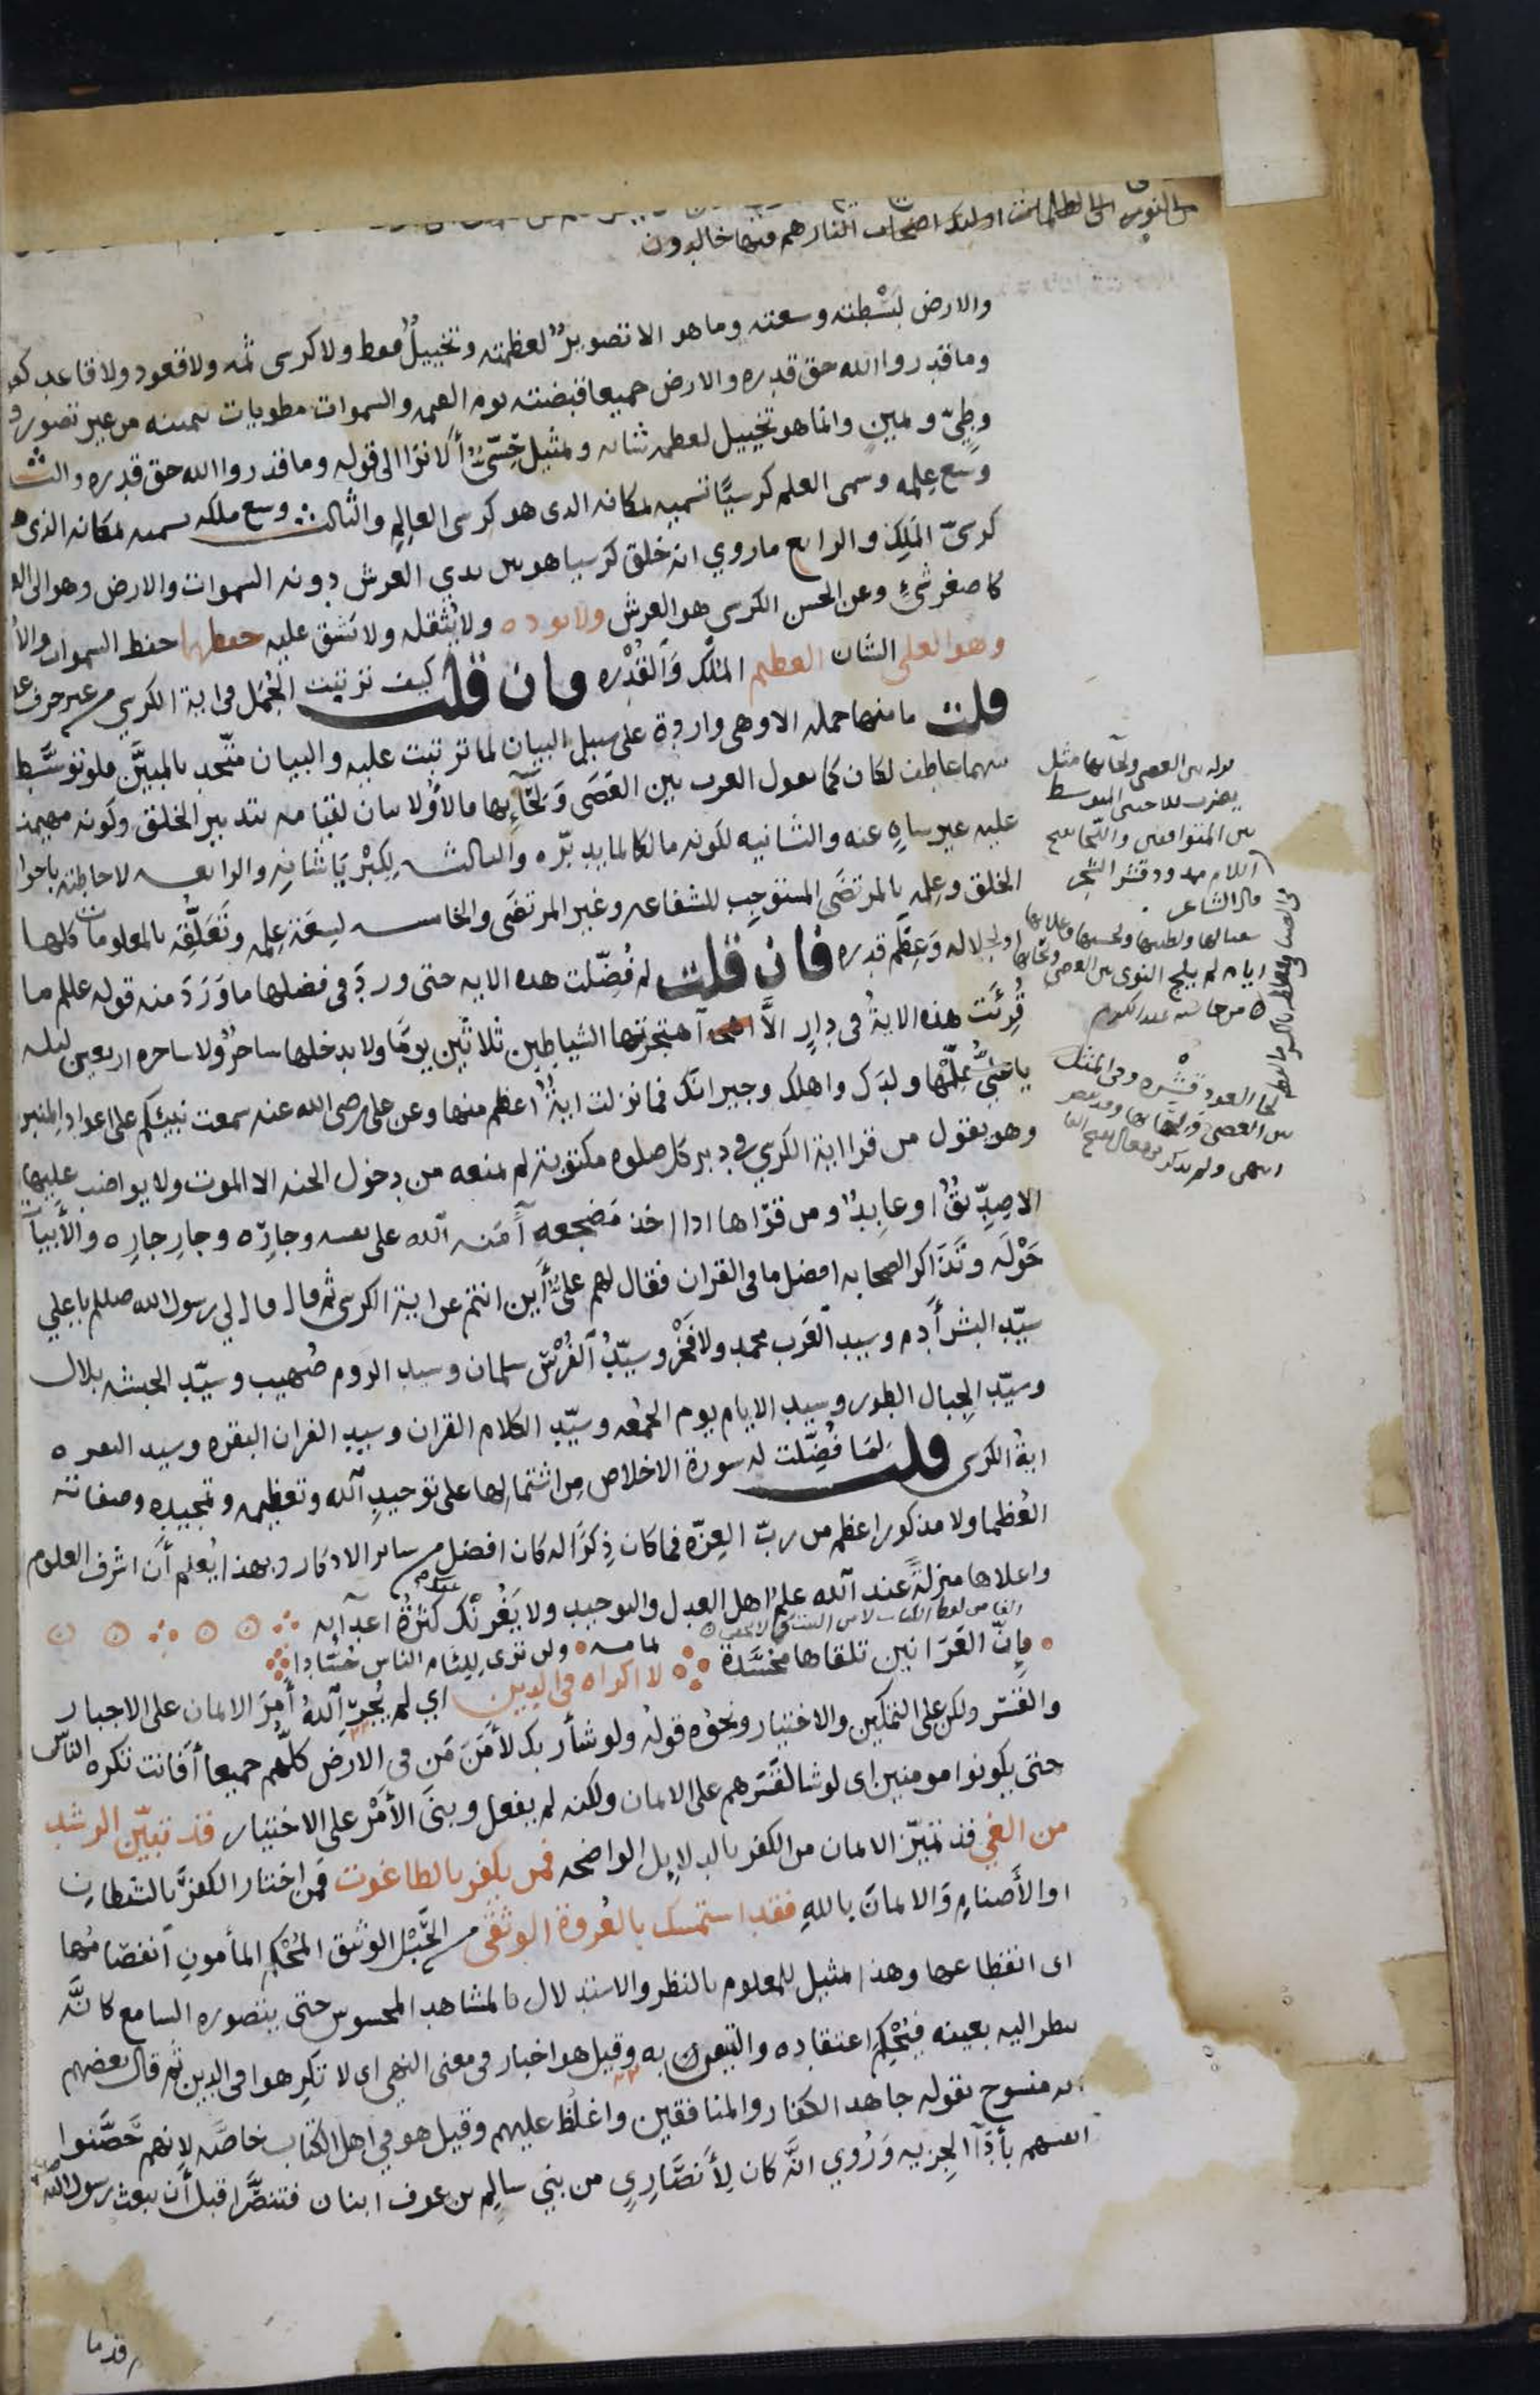 من النور الى الظلمات اولئك اصحاب النار هم فيها خالدون
والارض لبسْطته وسعته وما هو الا تصويرٌ لعظمته وتخييلٌ فقط ولا كرسى ثمه ولا قعود ولا قاعد
وما قدروا الله حق قدره والارض جميعا قبضته يوم القيمه والسموات مطويات بيمينه من غير تصور
وطيّ ويمين وانما هو تخييل لعظمه شانه وتمثيل حِسّىٌ ألا ترا الى قوله وما قدروا الله حق قدره والثانى
وسع علمه وسمى العلم كرسيًّا تسميه بمكانه الدى هو كرسى العالِم والثالث وسع ملكه تسميه بمكانه الذى هو
كرسىّ المَلِك والرابع ما روي انه خلق كرسيا هو بين يدي العرش دونه السموات والارض وهو الى
كاصغر شئٍ وعن الحسن الكرسى هو العرش ولا يوده ولا يُثقله ولا يشق عليه حفظهما حفظ السموات والارض
وهو العلى الشان العظيم المُلْك والقُدْره فان قلت كيف ترتبت الجُمَل فى اية الكرسى من غير حرف
قلت ما منها جمله الا وهى واردة على سبيل البيان لما ترتبت عليه والبيان متّحد بالمبيَّن فلو توسَّط
بينهما عاطف لكان كما يقول العرب بين العَصَى وَلِحَآئِها فالاوْلا بيان لقيامه بتدبير الخلق وكونه مهيمنا
عليه غير ساهٍ عنه والثانيه لكونه مالكا لما يدبرّه والثالثه لِكِبْرِيَا شانِه والرابعه لاحاطته باحوال
الخلق وعلمه بالمرتضَى المستوجِب للشفاعه وغير المرتضَى والخامسه لِسِعَة عِلمِه وتَعَلُّقِه بالمعلومات كلها
او لجلاله وعِظَم قدره فان قلت لِم فُضِّلت هده الايه حتى ورد فى فضلها ما وَرَدَ منه قوله عللم ما
قُرِئَت هذه الايةُ فى دارٍ الَّا اهتجرتها الشياطين ثلاثين يومًا ولا يدخلها ساحرٌ ولا ساحره اربعين ليله
يا علىُّ عَلِّمْها ولدَك واهلك وجيرانَك فما نزلت ايةٌ اعظم منها وعن على رضى الله عنه سمعت نبيّكم على اعواد المنبر
وهو يقول من قرا اية الكرسي في دبر كل صلوه مكتوبة لم يمنعه من دخول الجنه الا الموت ولا يواضب عليها
الا صِدِّيقٌ او عابِدٌ ومن قرَاها اذا اخذ مَضجعه آمَنه الله على نفسه وجارِه وجارِ جارِه والأبيات
حَوْلَه وتَذَاكر الصحابه افضل ما فى القران فقال لهم علىٌّ أين انتم عن اية الكرسى ثم قال قال لي رسول الله صللم يا علي
سيّد البشر أدم وسيد العَرَب محمد ولا فَخْر وسيّدُ الفُرْس سلمان وسيد الروم صُهيب وسيّد الحبشه بلال
وسيّد الجبال الطور وسيد الايام يوم الجمعه وسيّد الكلام القران وسيد القران البقره وسيد البقره
ايةُ الكرسى قلت لِمَا فُضِّلت له سورة الاخلاص مِن اشتمالها على توحيدِ الله وتعظيمه وتمجيده وصفاته
العُظما ولا مذكور اعظم من ربّ العِزّة فما كان ذِكرًا له كان افضل من ساير الاذكار وبهذا يُعلم أن اشرف العلوم
واعلاها منزلةً عند الله علمُ اهل العدل والتوحيد ولا يَغُرنّك كثرةُ اعدآئه
فإنّ العَرَانين تلقاها مُحسَّدة ولن ترى لِلِئام الناس حُسّادا
لا اكراه فى الدين اي لم يُجرِ اللهُ أمرَ الايمان على الاجبار
والقسر ولكن على التمكين والاختيار ونحوُه قولُه ولو شأ ربك لأَمَنَ مَن فى الارض كلّهم جميعا أفانت تكره الناس
حتى يكونوا مومنين اى لو شا لقَسَرهم على الايمان ولكنه لم يفعل وبنَى الأَمْر على الاختيار قد تبيّن الرشد
من الغي قد تميّز الايمان من الكفر بالدلايل الواضحه فمن يكفر بالطاغوت فمن اختار الكفرَ بالشيطان
او الأَصنامِ والايمانَ باللهِ فقد استمسك بالعُروة الوثقى من الحَبْل الوثيق المُحْكم المأمونِ انفصَامُها
اى انقطاعها وهذا تمثيل للمعلوم بالنظر والاستدلال بالمشاهد المحسوس حتى يتصوره السامع كانَّه
ينظر اليه بعينه فيُحْكِم اعتقاده والتيقن به وقيل هو اخبار فى معنى النهي اى لا تُكرِهوا فى الدين ثم قال بعضهم
انه منسوخ بقوله جاهد الكفار والمنافقين واغلُظ عليهم وقيل هو في اهل الكتاب خاصّه لانهم حَصَّنوا
انفسهم بأدَآ الجِزيه وَرُوي انَّه كان لِأَنصَارِيٍ من بني سالِم بن عوف ابنان فتنصَّرا قبل أن يبعث رسول الله
قوله بين العصى ولحآئها مثل
يضرب
بين المتوافقين واللحا بفتح
اللام ممدود قشر الشجر
قال الشاعر
لحا العود قشره وفى المثل
بين العصى ولحائها
قد ما